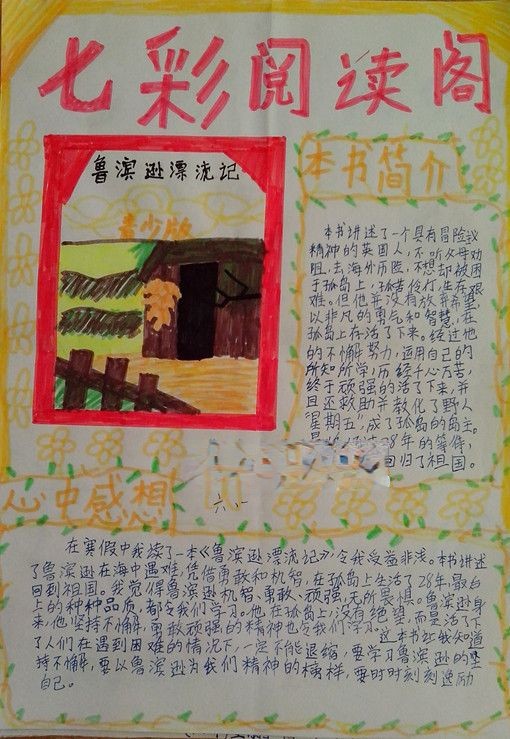 七彩阅读阁
鲁滨逊漂流记
青少版
本书简介
本书讲述了一个具有冒险
精神的英国人,不听父母劝
阻,去海外历险,不想却被困
于孤岛上,孤苦伶仃,生存艰
难。但他并没有放弃希望,
以非凡的勇气和智慧,在
孤岛上存活了下来。经过他
的不懈努力,运用自己的
所知所学,历经千心万苦,
终于顽强的活了下来,并
且还救助并教化了野人
“星期五”,成了孤岛的岛主。
28年的等待,
回归了祖国。
心虫感想
六、
在寒假中我读了一本《鲁滨逊漂流记》,令我受益非浅。本书讲述
了鲁滨逊在海中遇难,凭借勇敢和机智,在孤岛上生活了28年,最
回到祖国。我觉得鲁滨逊机智、勇敢、顽强、无所畏惧。鲁滨逊身
上的种种品质,都令我们学习。他在孤岛上,没有绝望,而是活了下
来,他坚持不懈,勇敢顽强的精神也令我们学习。这本书让我知道
了人们在遇到困难的情况下,一定不能退缩,要学习鲁滨逊的坚
持不懈,要以鲁滨逊为我们精神的榜样,要时时刻刻
自己。